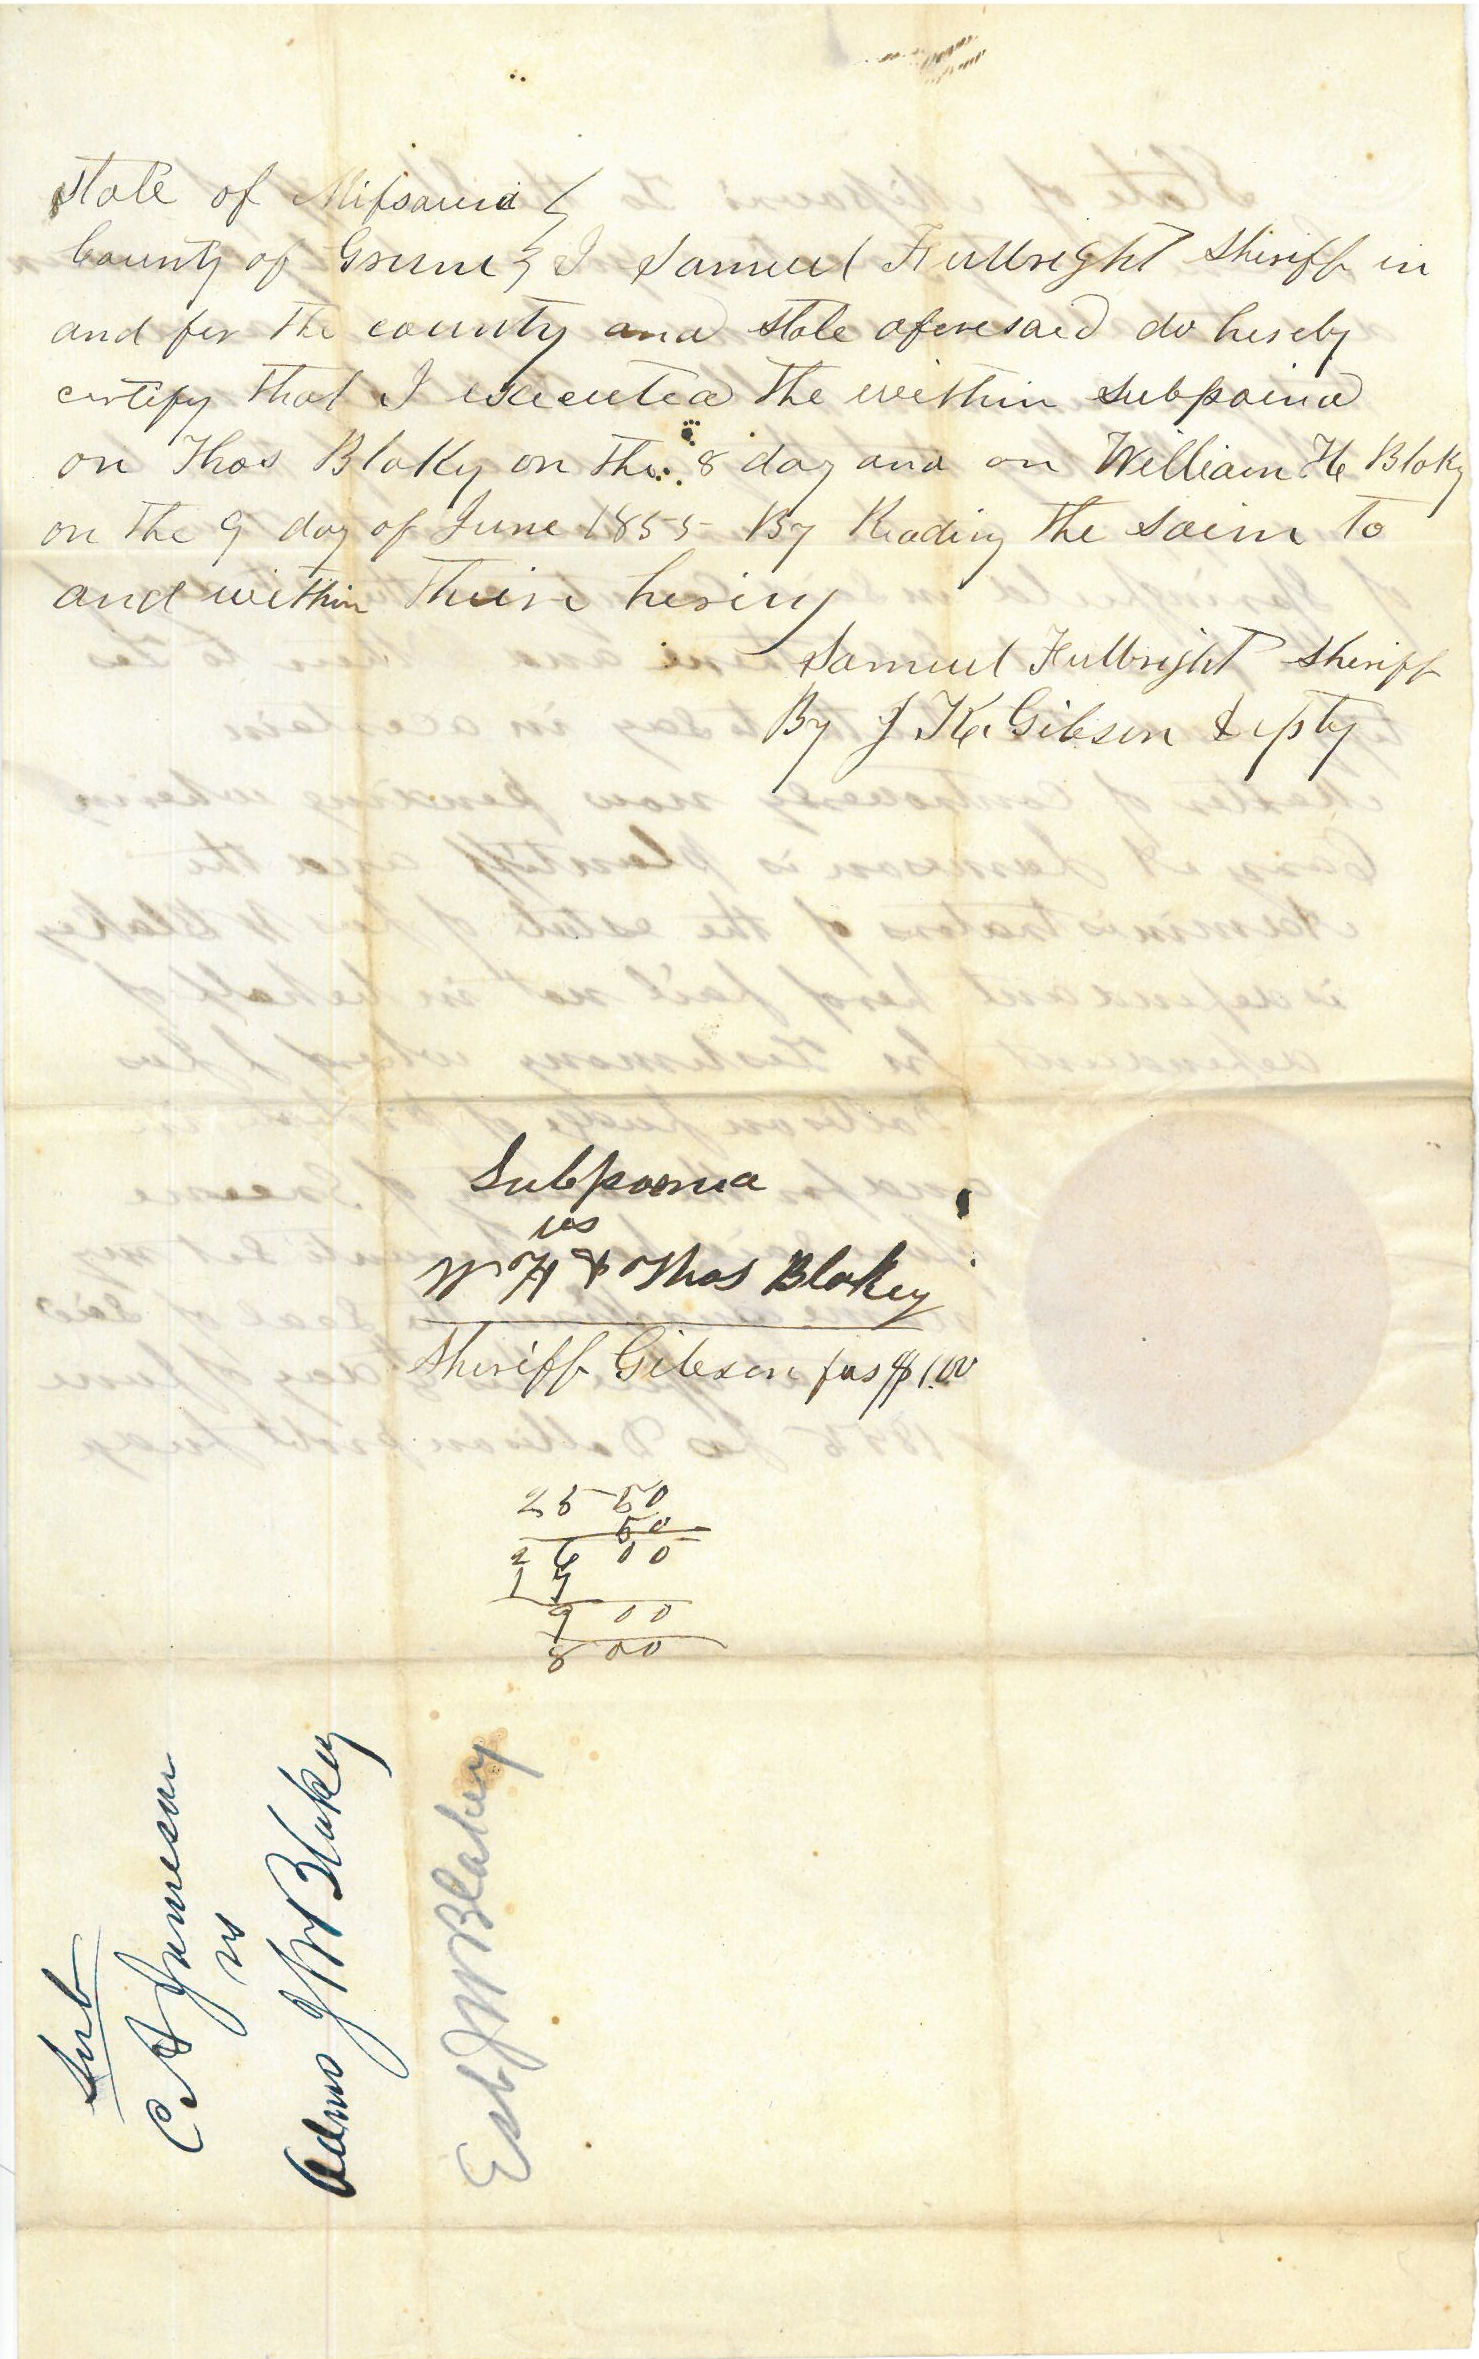 State of Missouri
County of Green I Samuel Fulbright Sheriff in
and for the county and state aforesaid do hereby
certify that I executed the within subpoina
on Thos Blaky on the 8 day and on William H Blaky
on the 9 day of June 1855 By Reading the saim to
and within their hering
Samuel Fulbright Sheriff
By J K Gibson Depty
Subpoena
vs
W H & Thos Blakey
Sheriff Gibson fas $1.00
25 50
50
26 00
17
9 00
8 00
Sub
C A Jameson
vs
Adms J W Blakey
Est J W Blakey